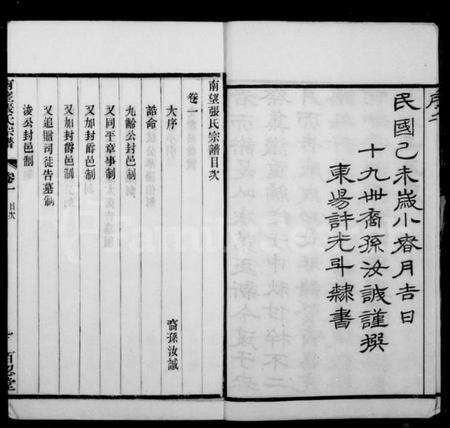 序二
民國己未歲小春月吉日
十九卅裔孫汝誠謹撰
東陽許光斗隸書
南望張氏宗譜目次
卷一
大序 裔孫汝誠
誥命
九齡公封邑制
又同平章事制
又加封爵邑制
又加封爵邑制
又追贈司徒告墓制
淩公封邑制
南望張氏宗譜 卷一 目次 一 百忍堂